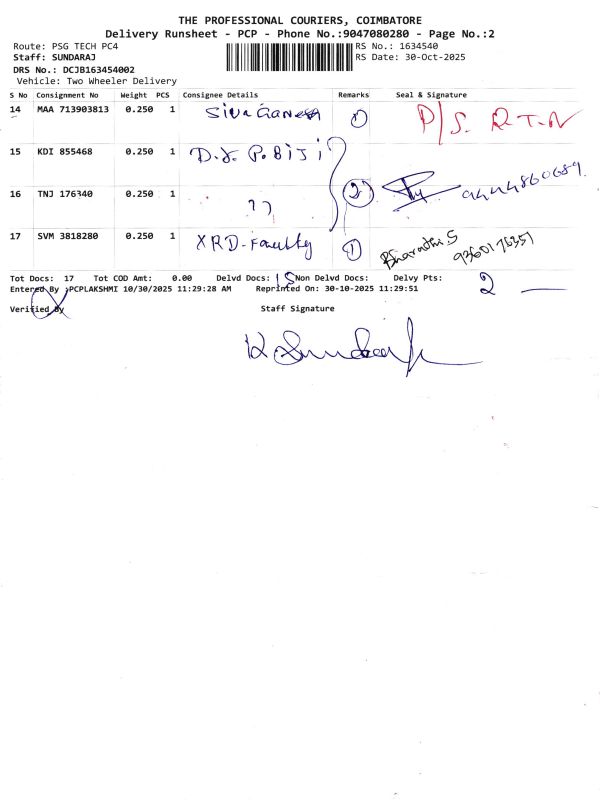 THE PROFESSIONAL COURIERS, COIMBATORE
Delivery Runsheet - PCP - Phone No.:9047080280 - Page No.:2
Route: PSG TECH PC4 RS No.: 1634540
Staff: SUNDARAJ RS Date: 30-Oct-2025
DRS No.: DCJB163454002
Vehicle: Two Wheeler Delivery
S No Consignment No Weight PCS Consignee Details Remarks Seal & Signature
14 MAA 713903813 0.250 1 Siva Ganesh 1 D/S. R.T.N
15 KDI 855468 0.250 1 D.J. P.BIJI
16 TNJ 176340 0.250 1 11 2 9444860689.
17 SVM 3818280 0.250 1 XRD-Faculty 1 Bharathi S 9360176357
Tot Docs: 17 Tot COD Amt: 0.00 Delvd Docs: 15 Non Delvd Docs: Delvy Pts: 2 —
Entered By :PCPLAKSHMI 10/30/2025 11:29:28 AM Reprinted On: 30-10-2025 11:29:51
Verified By Staff Signature